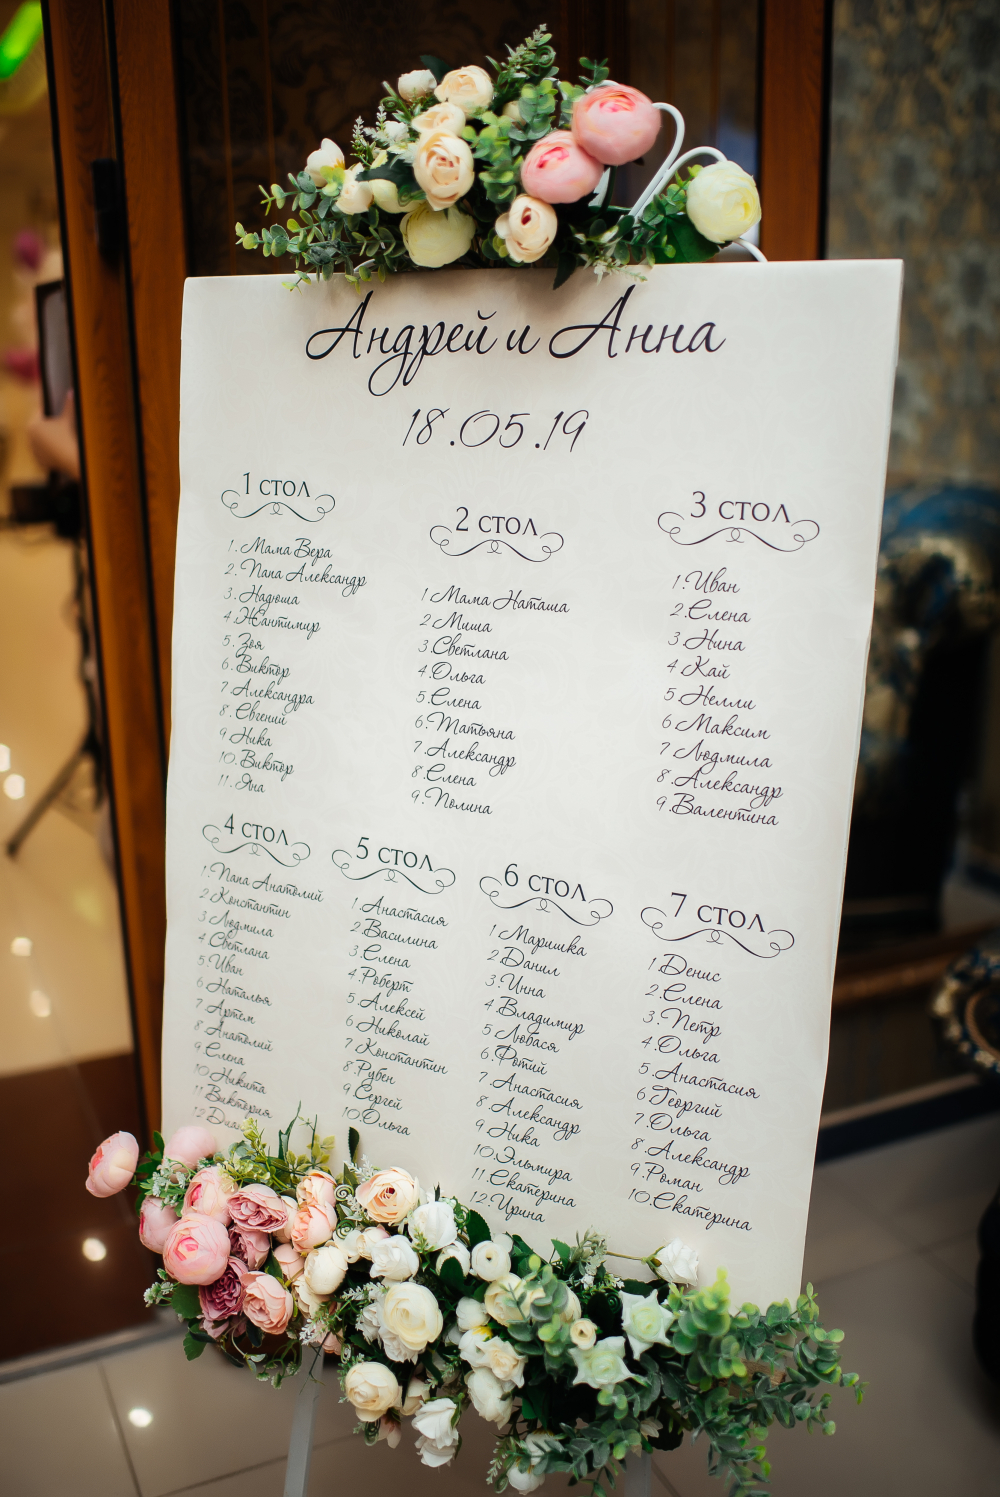 Андрей и Анна
18.05.19
1 стол
1. Мама Вера
2. Папа Александр
3. Надюша
4. Жантимир
5. Зоя
6. Виктор
7. Александра
8. Евгений
9 Ника
10. Виктор
11. Яна
2 стол
1 Мама Наташа
2 Миша
3.Светлана
4.Ольга
5.Елена
6.Татьяна
7.Александр
8.Елена
9.Полина
3 стол
1.Иван
2.Елена
3.Нина
4 Кай
5.Нелли
6 Максим
7 Людмила
8.Александр
9.Валентина
4 стол
1.Папа Анатолий
2 Константин
3 Людмила
4 Светлана
5.Иван
6 Наталья
7 Артем
8 Анатолий
9.Елена
10 Никита
11 Виктория
12
5 стол
1.Анастасия
2.Василина
3.Елена
4.Роберт
5.Алексей
6 Николай
7 Константин
8.Рубен
9.Сергей
10.Ольга
6 стол
1 Маришка
2.Данил
3.Инна
4.Владимир
5 Любася
6.Фотий
7 Анастасия
8 Александр
9 Ника
10.Эльмира
11.Екатерина
12.Ирина
7 стол
1.Денис
2.Елена
3.Петр
4.Ольга
5.Анастасия
6 Георгий
7.Ольга
8.Александр
9.Роман
10.Екатерина